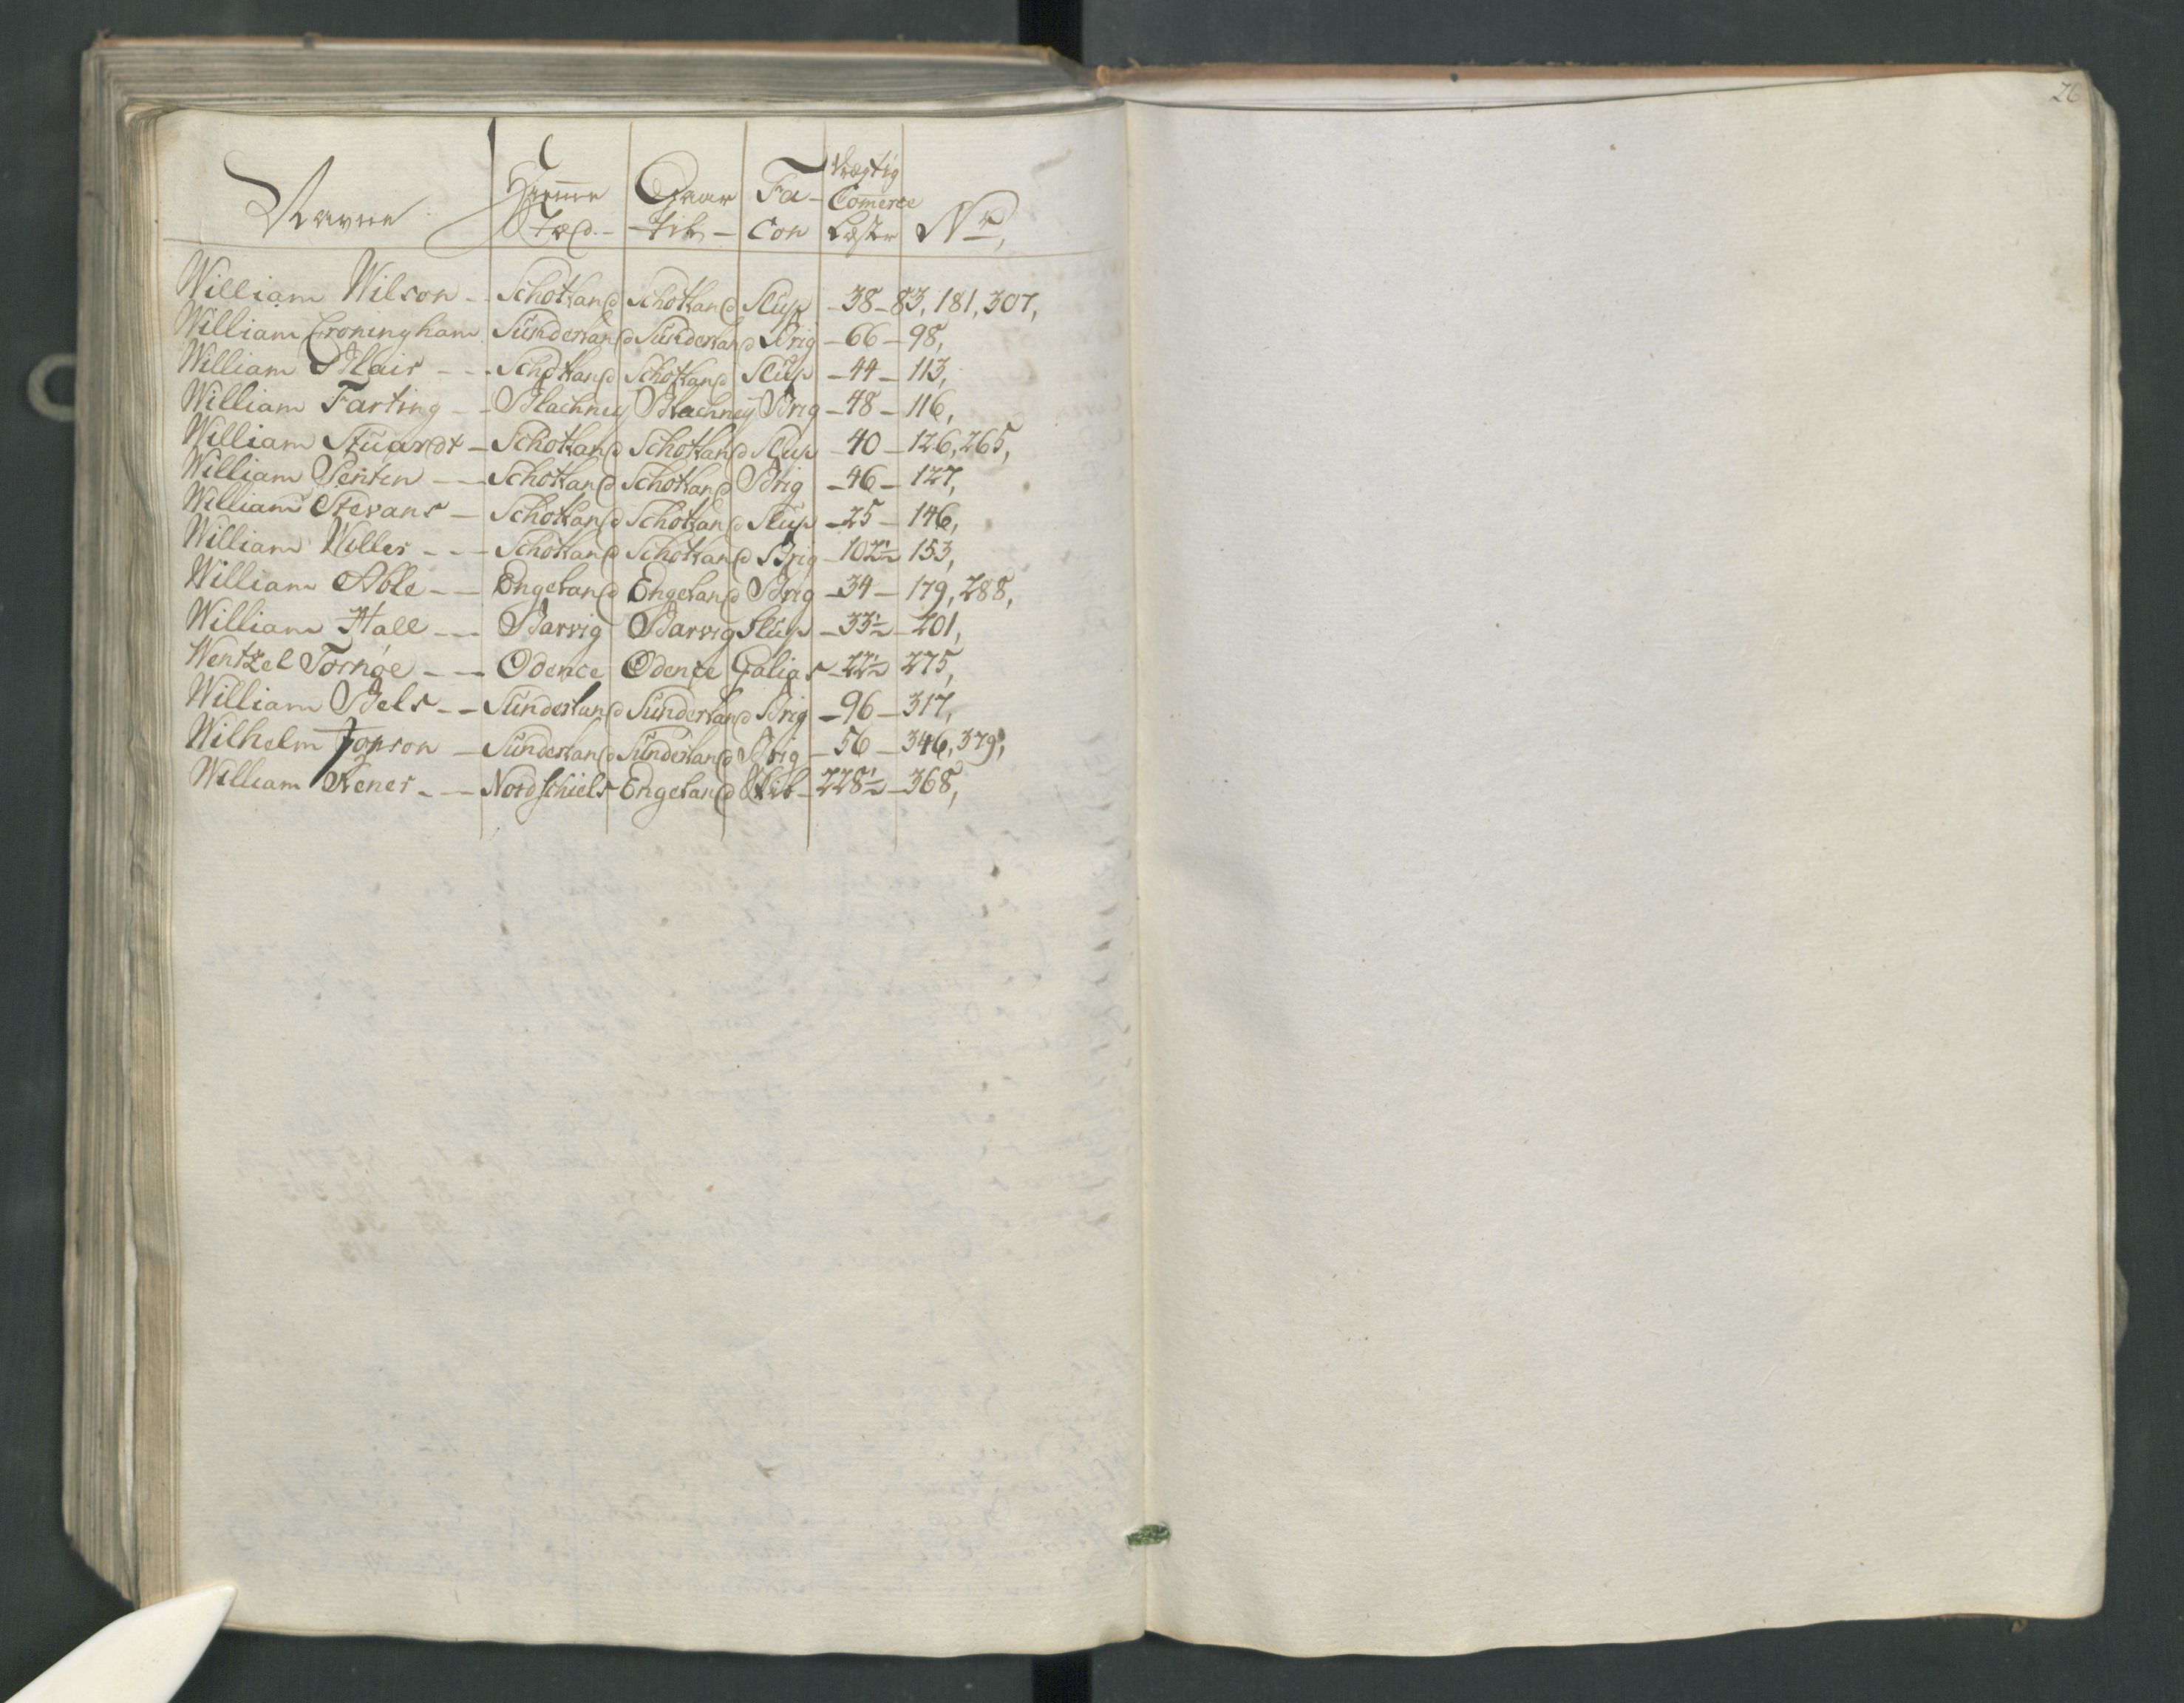 26
Navne Hiemme Stæd. Gaar til Fa-Con Drægtig Comerce Læster No,
William Wilson - Schotland Schotland Slup - 38 - 83, 181, 307,
William Croningham Sunderland Sunderland Brig - 66 - 98,
William Blair - - Schotland Schotland Slup - 44 - 113,
William Farting - - Blachney Blachney Brig - 48 - 116,
William Stuardt - Schotland Schotland Slup - 40 - 126, 265,
William Penten - - Schotland Schotland Brig - 46 - 127,
William Stevans - Schotland Schotland Slup - 25 - 146,
William Willer - - - Schotland Schotland Brig - 102½ 153,
William Able - - Engeland Engeland Brig - 34 - 179, 288,
William Hall - - - Barvig Barvig Slup - 33½ - 201,
Wentzel Tornøe - - - Odence Odence Galias - 22½ 275,
William Bels - - Sunderland Sunderland Brig - 96 - 317,
Wilhelm Jopson - Sunderland Sunderland Brig - 56 - 346, 379,
William Kener - - Nordschiels Engeland Skib - 228½ - 368,